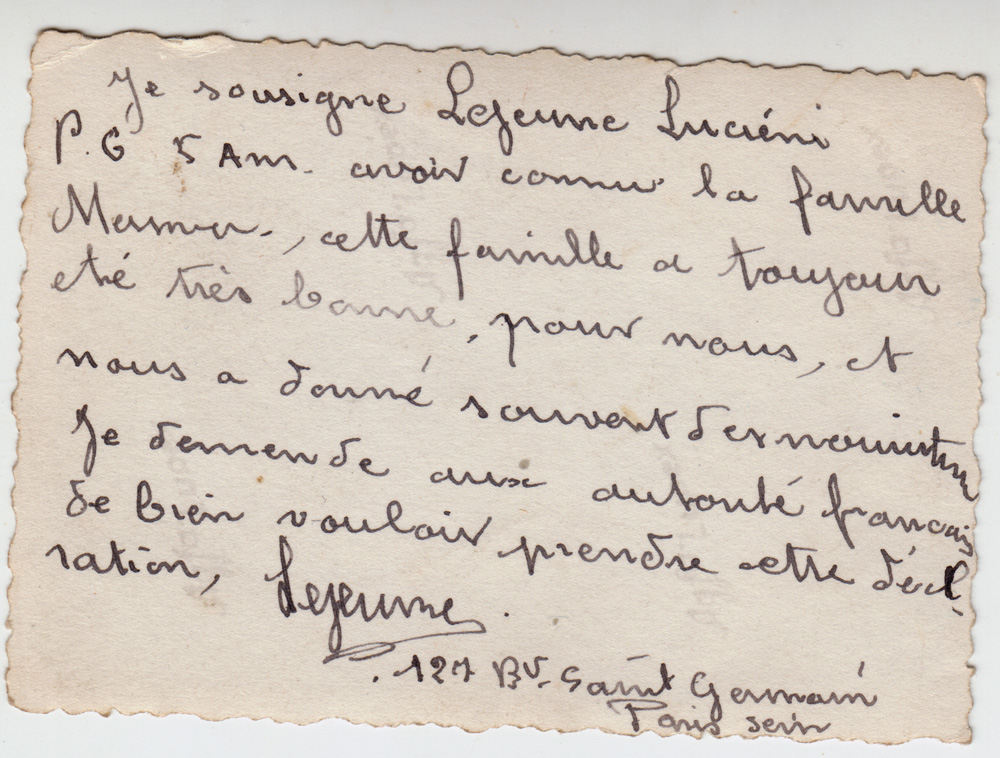 Je sousigne Lejeune Luciéni
P.G 5 Am. avoir connu la famille
cette famille a toujour
eté très bonne, pour nous, et
nous a donné souvent des nouritur
Je demende aux autorité francais
de bien vouloir prendre cette décl-
ration, Lejeune.
127 Bv. Saint Germain
Paris sein